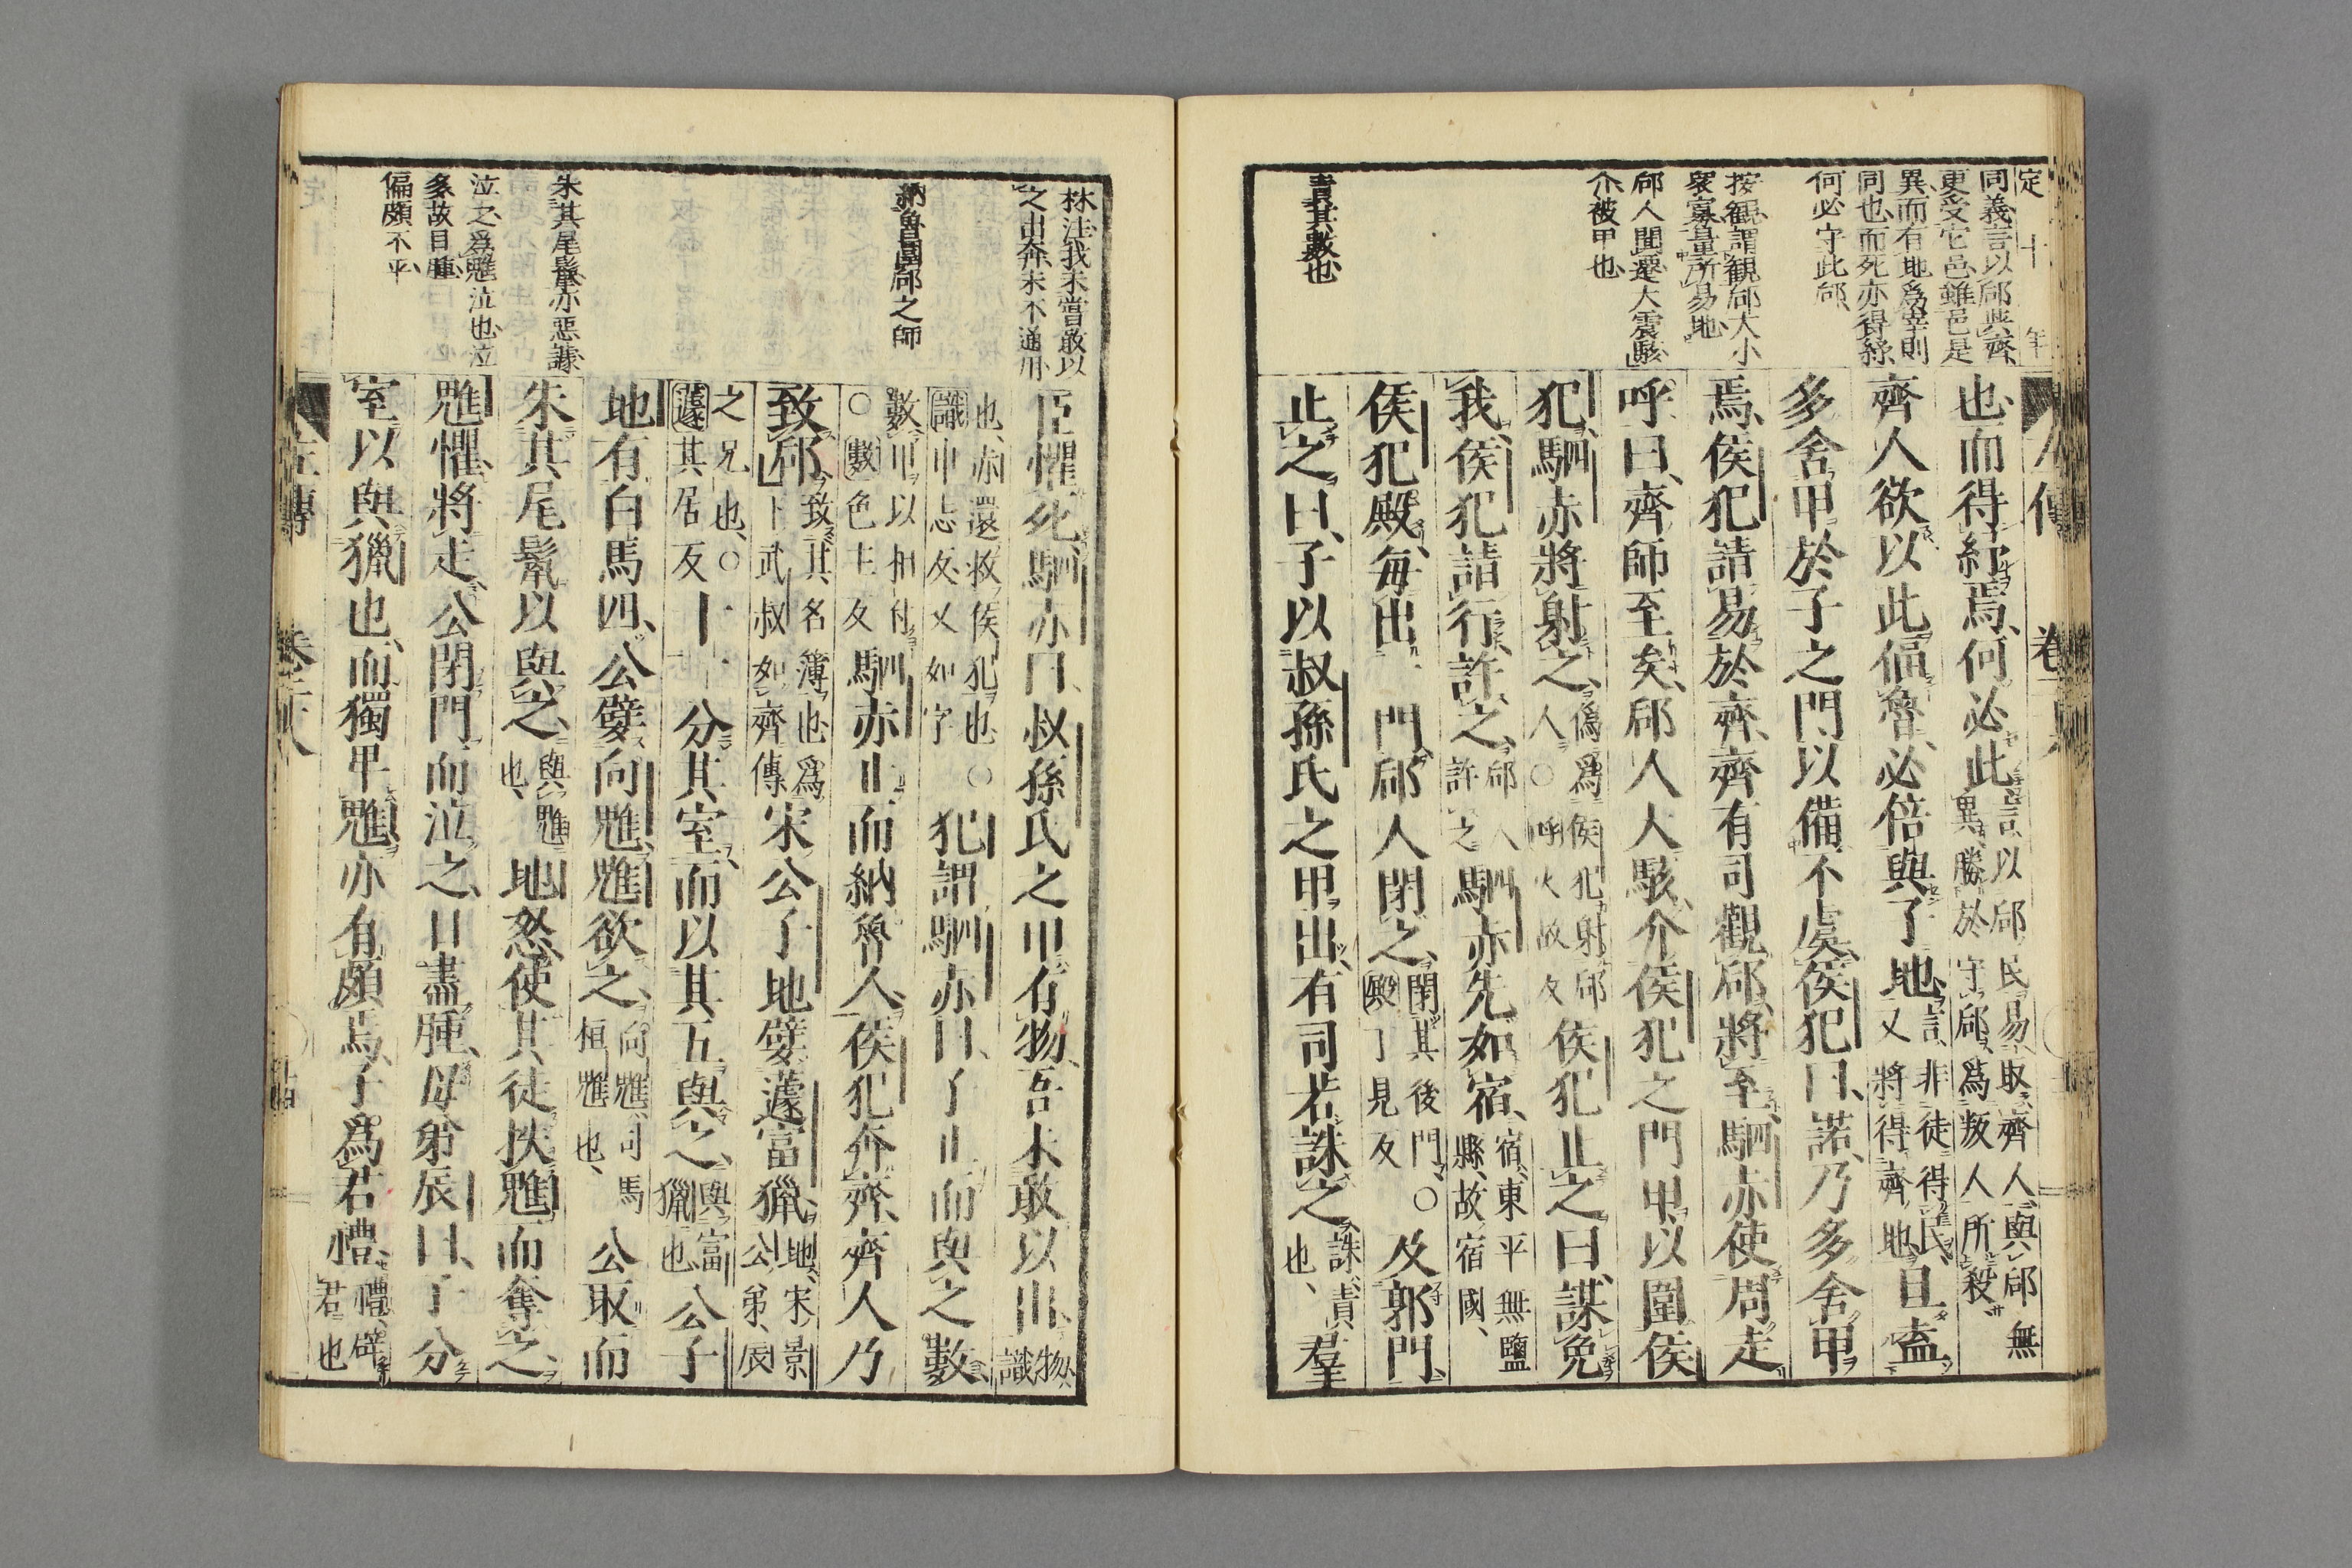 定 十 年
同義言以郈與齊
更受它邑雖邑是
異而有地爲宰則
同也而死亦得紓
何必守此郈
按觀謂觀郈大小
衆寡量所易地
郈人聞遷大震駭
介被甲也
責其數也
左傳 卷二十八
也而得紓焉何必此言以郈民易取齊人與郈無
異勝於守郈爲叛人所殺
齊人欲以此偪魯必倍與子地言非徒得民
又將得齊地且盍
多舍甲於子之門以備不虞侯犯曰諾乃多舍甲
焉侯犯請易於齊齊有司觀郈將至駟赤使周走
呼曰齊師至矣郈人大駭介侯犯之門甲以圍侯
犯駟赤將射之僞爲侯犯射郈
人○呼火故反侯犯止之曰謀免
我侯犯請行許之郈人
許之駟赤先如宿宿東平無鹽
縣故宿國
侯犯殿每出一門郈人閉之閉其後門○
殿丁見反及郭門
止之曰子以叔孫氏之甲出有司若誅之誅責
也羣
林注我未嘗敢以
之出奔未不通用
納魯圍郈之師
朱其尾鬣亦惡謔
泣之爲魋泣也泣
多故目腫
偏頗不平
臣懼死駟赤曰叔孫氏之甲有物吾未敢以出物
識
也赤還救侯犯也○
識申志反又如字犯謂駟赤曰子止而與之數
數甲以相付
○數色主反駟赤止而納魯人侯犯奔齊齊人乃
致郈致其名簿也爲
卜武叔如齊傳宋公子地嬖蘧富獵地宋景
公弟辰
之兄也○
蘧其居反十一分其室而以其五與之與富
獵也公子
地有白馬四公嬖向魋魋欲之向魋司馬
桓魋也公取而
朱其尾鬣以與之與魋
也地怒使其徒抶魋而奪之
魋懼將走公閉門而泣之目盡腫母弟辰曰子分
室以與獵也而獨卑魋亦有頗焉子爲君禮禮辟
君也
左傳 卷二十八 十四